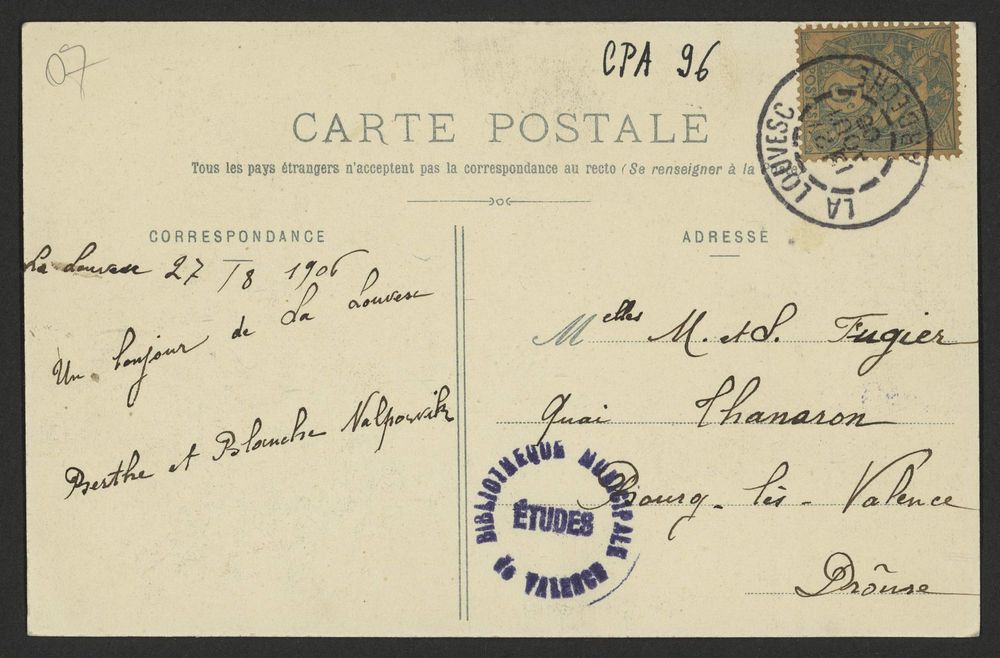 07
CPA 96
CARTE POSTALE
Tous les pays étrangers n'acceptent pas la correspondance au recto (Se renseigner à la
LA LOUVESC
ARDECHE
CORRESPONDANCE
ADRESSE
La Louvesc 27/8 1906
Un bonjour de La Louvesc
Berthe et Blanche
Melles M. et S. Fugier
Quai Thanaron
Bourg-lès-Valence
Drôme
BIBLIOTHEQUE MUNICIPALE
ÉTUDES
de VALENCE